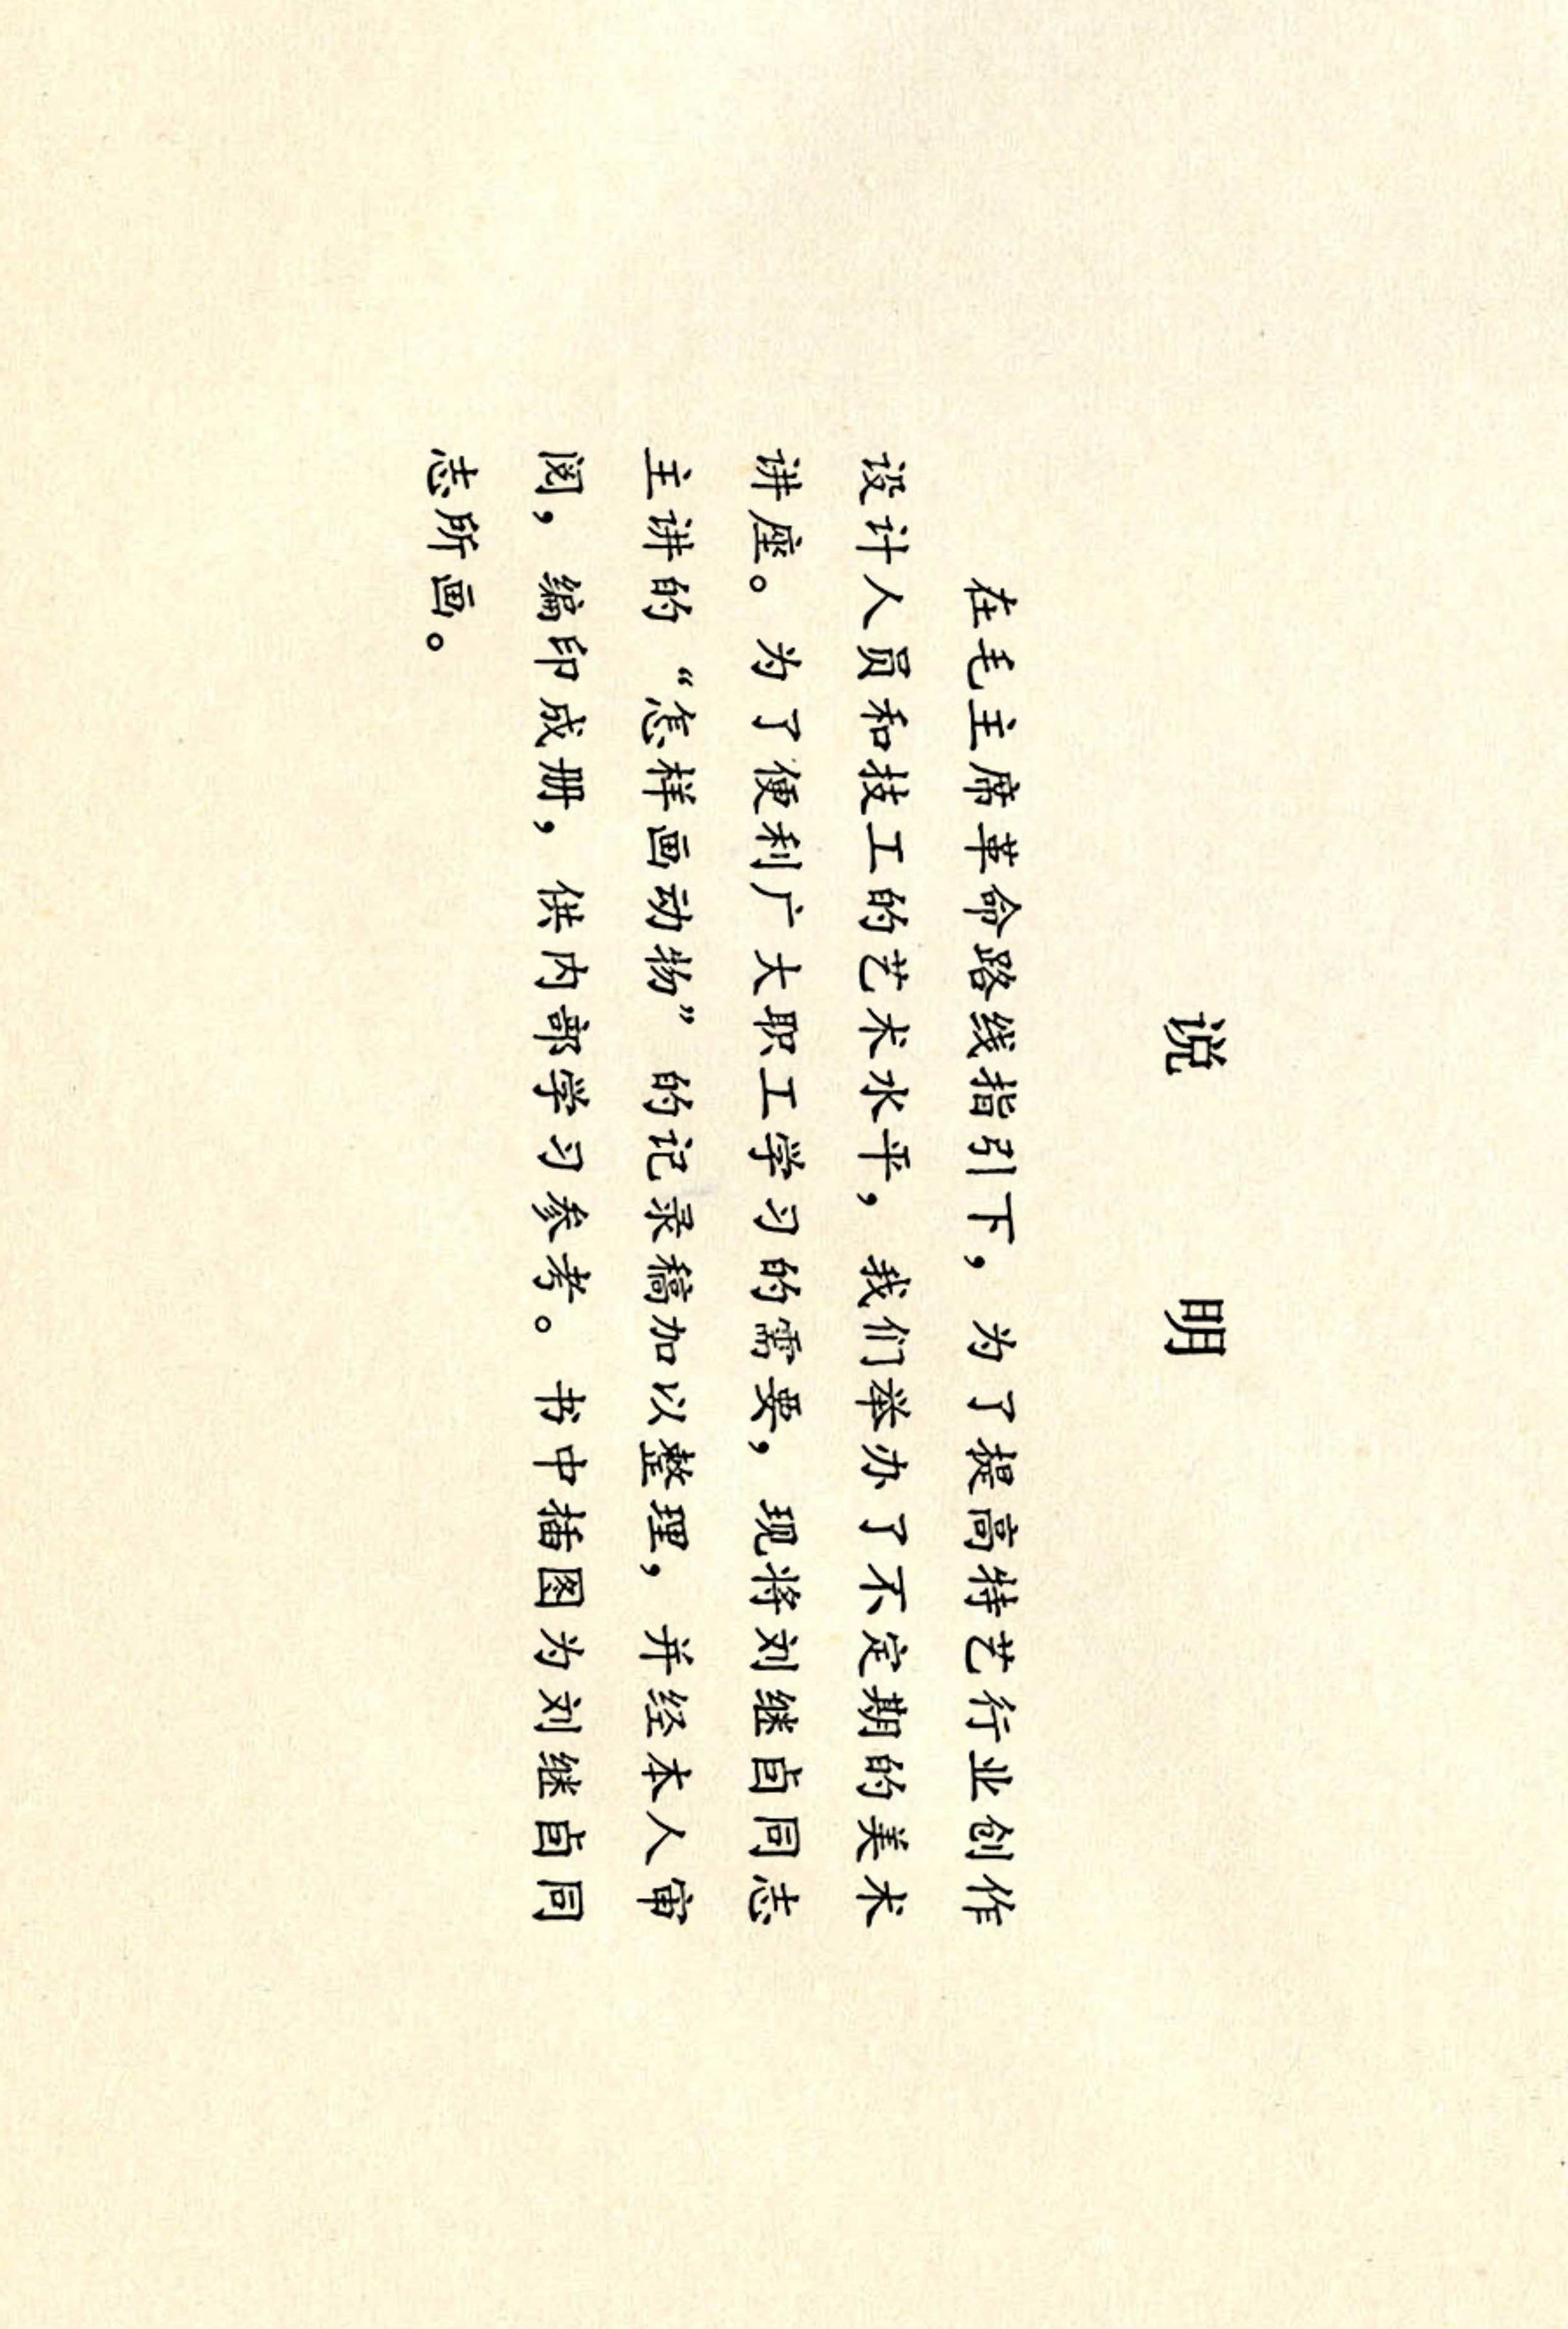 说明
在毛主席革命路线指引下，为了提高特艺行业创作
设计人员和技工的艺术水平，我们举办了不定期的美术
讲座。为了便利广大职工学习的需要，现将刘继卣同志
主讲的“怎样画动物”的记录稿加以整理，并经本人审
阅，编印成册，供内部学习参考。书中插图为刘继卣同
志所画。